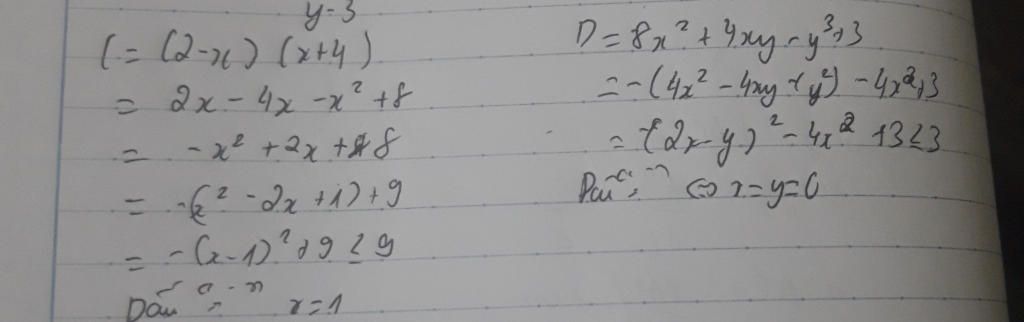 y=3
C = (2-x) (x+4)
= 2x - 4x - x² + 8
= -x² + 2x + 8
= -(x² - 2x + 1) + 9
= -(x-1)² + 9 ≤ 9
Dấu "=" x=1
D = 8x² + 4xy - y³ + 3
= -(4x² - 4xy + y²) - 4x² + 3
= -(2x-y)² - 4x² + 3 ≤ 3
Dấu "=" ⇔ x=y=0